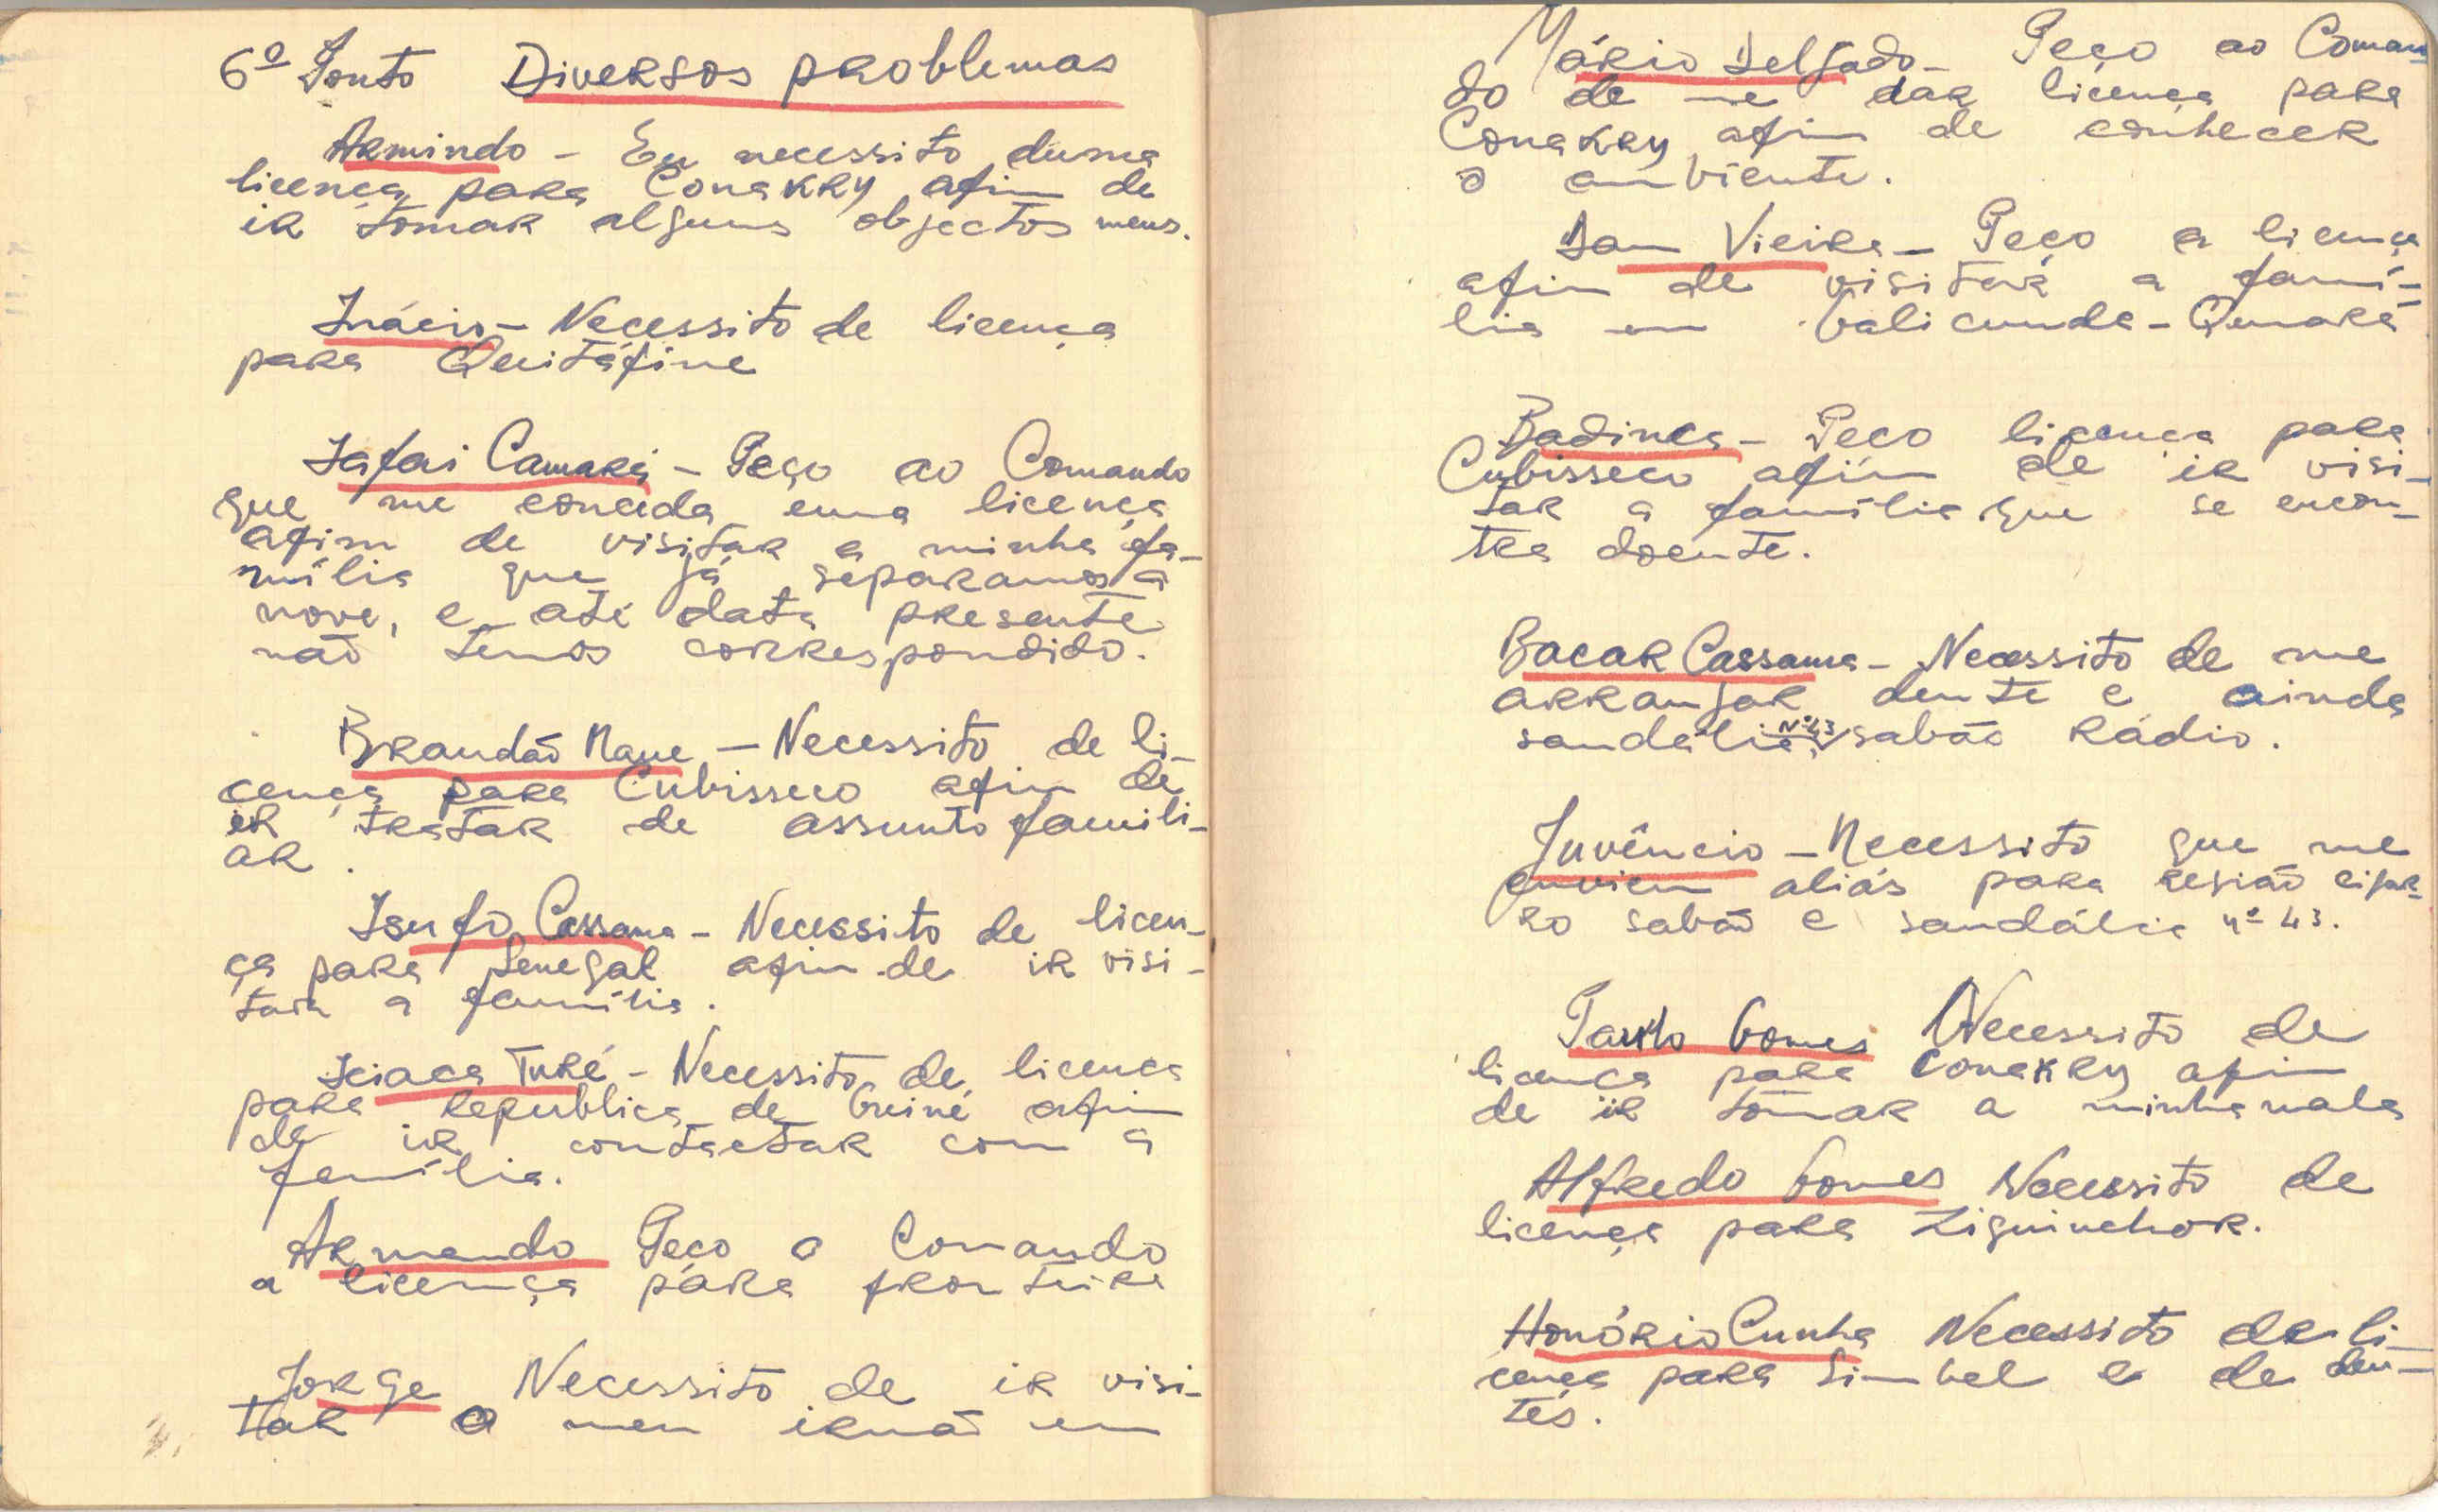 6º Ponto Diversos problemas
Armindo - Eu necessito duma
licença para Conakry afim de
ir tomar alguns objectos meus.
Inácio - Necessito de licença
para Quitáfine
Jafai Camará - Peço ao Comando
que me conceda uma licença
afim de visitar a minha fa-
mília que já separamos a
nove, e até data presente
não temos correspondido.
Brandão Mane - Necessito de li-
cença para Cubisseco afim de
ir tratar de assunto famili-
ar.
Isufo Cassama - Necessito de licen-
ça para Senegal afim de ir visi-
tar a família.
Iciaca Turé - Necessito de licença
para Republica de Guiné afim
de ir contactar com a
família.
Armando Peço o Comando
a licença para fronteira
Jorge Necessito de ir visi-
tar o meu irmão em
Mário Delgado - Peço ao Coman
do de me dar licença para
Conakry afim de conhecer
o ambiente.
Dam Vieira - Peço a licença
afim de visitar a famí-
lia em Galicunda - Quinara
Badinca - Peço licença para
Cubisseco afim de ir visi-
tar a família que se encon-
tra doente.
Bacar Cassama - Necessito de me
arranjar dente e ainda
sandália, Nº 43 sabão Rádio.
Juvêncio - Necessito que me
enviem aliás para região cigar-
ro sabão e sandália nº 43.
Paulo Gomes Necessito de
licença para Conakry afim
de ir tomar a minha mala
Alfredo Gomes Necessito de
licença para Ziguinchor.
Honório Cunha Necessito de li-
cença para Simbel e de den-
tes.